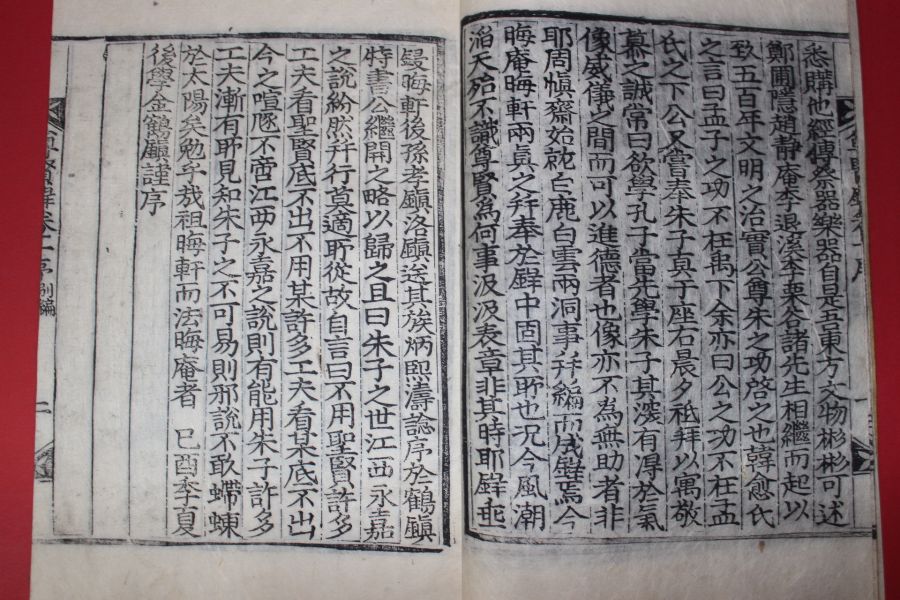 悉購他經傳祭器樂器自是吾東方文物彬彬可述
鄭圃隱趙靜庵李退溪李栗谷諸先生相繼而起以
致五百年文明之治實公尊朱之功啓之也韓愈氏
之言曰孟子之功不在禹下余亦曰公之功不在孟
氏之下公又嘗奉朱子眞于座右晨夕祗拜以寓敬
慕之誠常曰欲學孔子當先學朱子其深有得於氣
像威儀之間而可以進德者也像亦不爲無助者非
耶周愼齋始建白鹿白雲兩洞事幷編而成錄焉今
晦庵晦軒兩眞之幷奉於錄中固其所也况今風潮
滔天殆不識尊賢爲何事汲汲表章非其時耶錄旣
晦軒後孫孝鎭洛鎭送其族炳熙濤誌序於鶴鎭
特書公繼開之略以歸之且曰朱子之世江西永嘉
之說紛然幷行莫適所從故自言曰不用聖賢許多
工夫看聖賢底不出不用某許多工夫看某底不出
今之喧豗不啻江西永嘉之說則有能用朱子許多
工夫漸有所見知朱子之不可易則邪說不敢蠕蝀
於太陽矣勉乎哉祖晦軒而法晦庵者 己酉季夏
後學金鶴鎭謹序
尊賢錄卷一序 別編 二